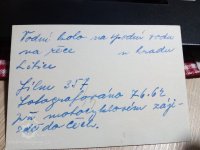 Vodní kolo na spodní vodu
na řece u hradu
Litice
Film: 357
Fotografováno 7.6.62
při motocyklovém záj-
ezdu do Čech.